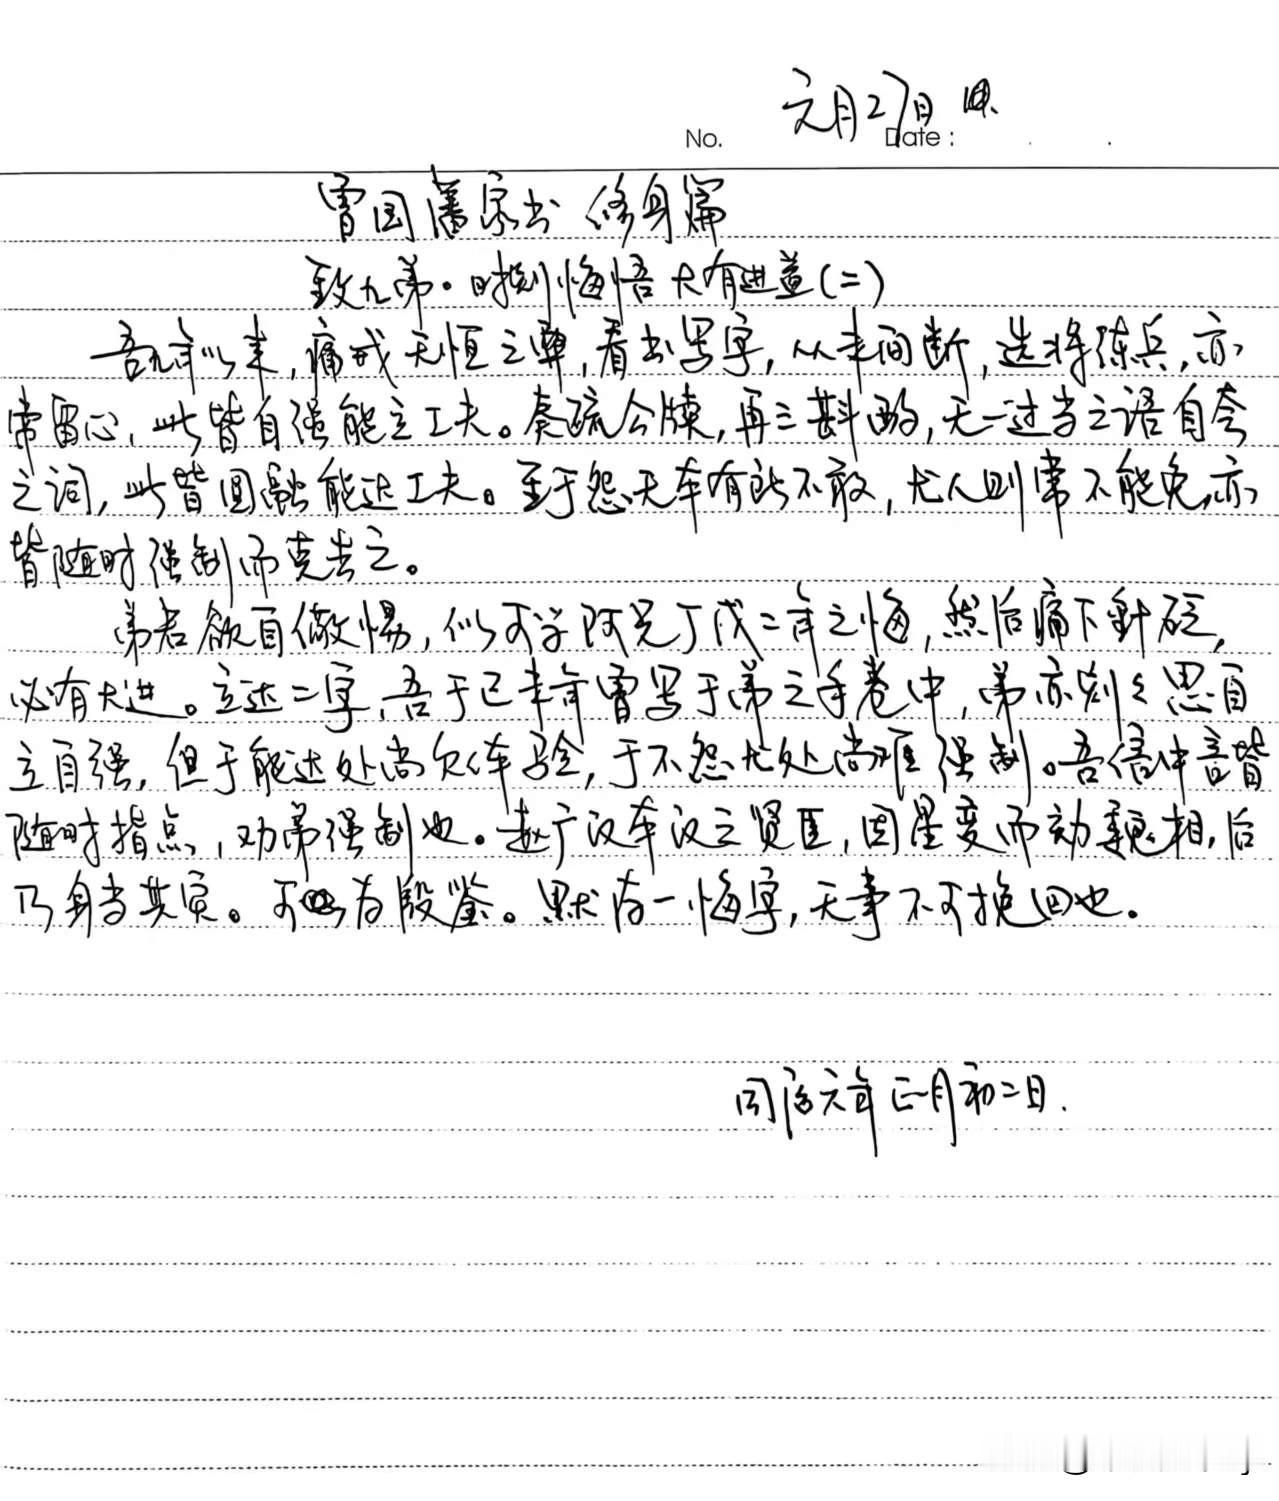 元月27日
No. Date:
曾国藩家书 修身篇
致九弟。时刻悔悟大有进益(二)
吾九年以来,痛戒无恒之弊,看书写字,从未间断,选将练兵,亦
常留心,此皆自强能立工夫。奏疏公牍,再三斟酌,无一过当之语自夸
之词,此皆圆融能达工夫。至于怨天本有所不敢,尤人则常不能免,亦
皆随时强制而克去之。
弟若欲自儆惕,似可学阿兄丁戊二年之悔,然后痛下针砭,
必有大进。立达二字,吾于己未年曾写于弟之手卷中,弟亦刻刻思自
立自强,但于能达处尚欠体验,于不怨尤处尚难强制。吾信中言皆
随时指点,劝弟强制也。赵广汉本汉之贤臣,因星变而劾魏相,后
乃身当其灾。可以为殷鉴。默存一悔字,无事不可挽回也。
同治六年正月初二日.